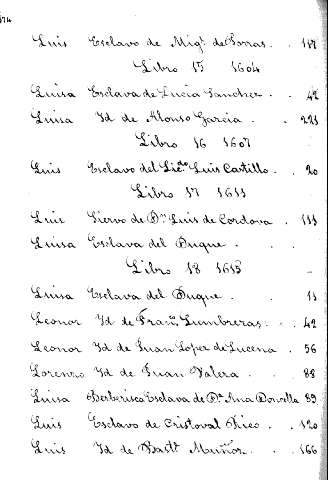 174
Luis Esclavo de Migl de Porras . . 117
Libro 15 1604
Luisa Esclava de Lucia Sanchez . . 42
Luisa Id de Alonso Garcia . . 221
Libro 16 1607
Luis Esclavo del Licdo Luis Castillo . . 20
Libro 17 1611
Luis Siervo de Dn Luis de Cordova . . 111
Luisa Esclava del Duque . . .
Libro 18 1613
Luisa Esclava del Duque . . 11
Leonor Id de Franca Lumbreras . . 42
Leonor Id de Juan Lopez de Lucena . 56
Lorenzo Id de Juan Valera . . 88
Luisa Berberisca Esclava de Da Ana Donvella 89
Luis Esclavo de Cristoval Rico . . 120
Luis Id de Bastn Muñoz . . 166